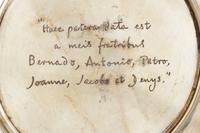 "Haec patera data est
a meis fratribus
Bernado, Antonio, Petro,
Joanne, Jacobo et Denys."